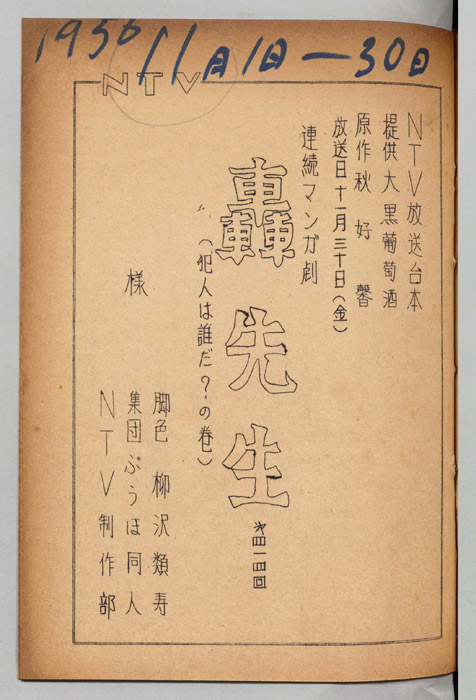 1956 11月1日—30日
NTV
NTV放送台本
提供大黒葡萄酒
原作秋好馨
放送日十一月三十日(金)
連続マンガ劇
轟先生
才四一四回
(犯人は誰だ?の巻)
様
脚色 柳沢類寿
集団ぶうほ同人
NTV制作部